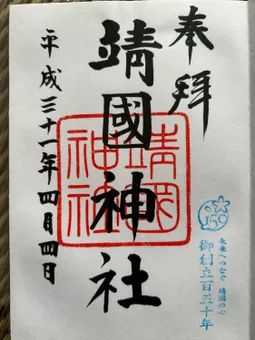 奉拝
靖國神社
平成三十一年四月四日
靖國
神社
150
未来へつなぐ 靖國の心
御創立百五十年